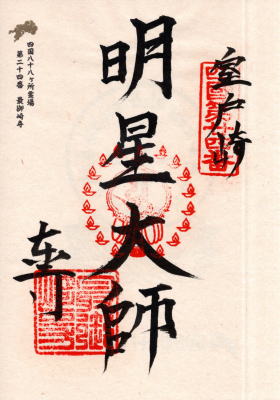 室戸崎
明星大師
東寺
四国八十八ヶ所霊場
第二十四番 最御崎寺